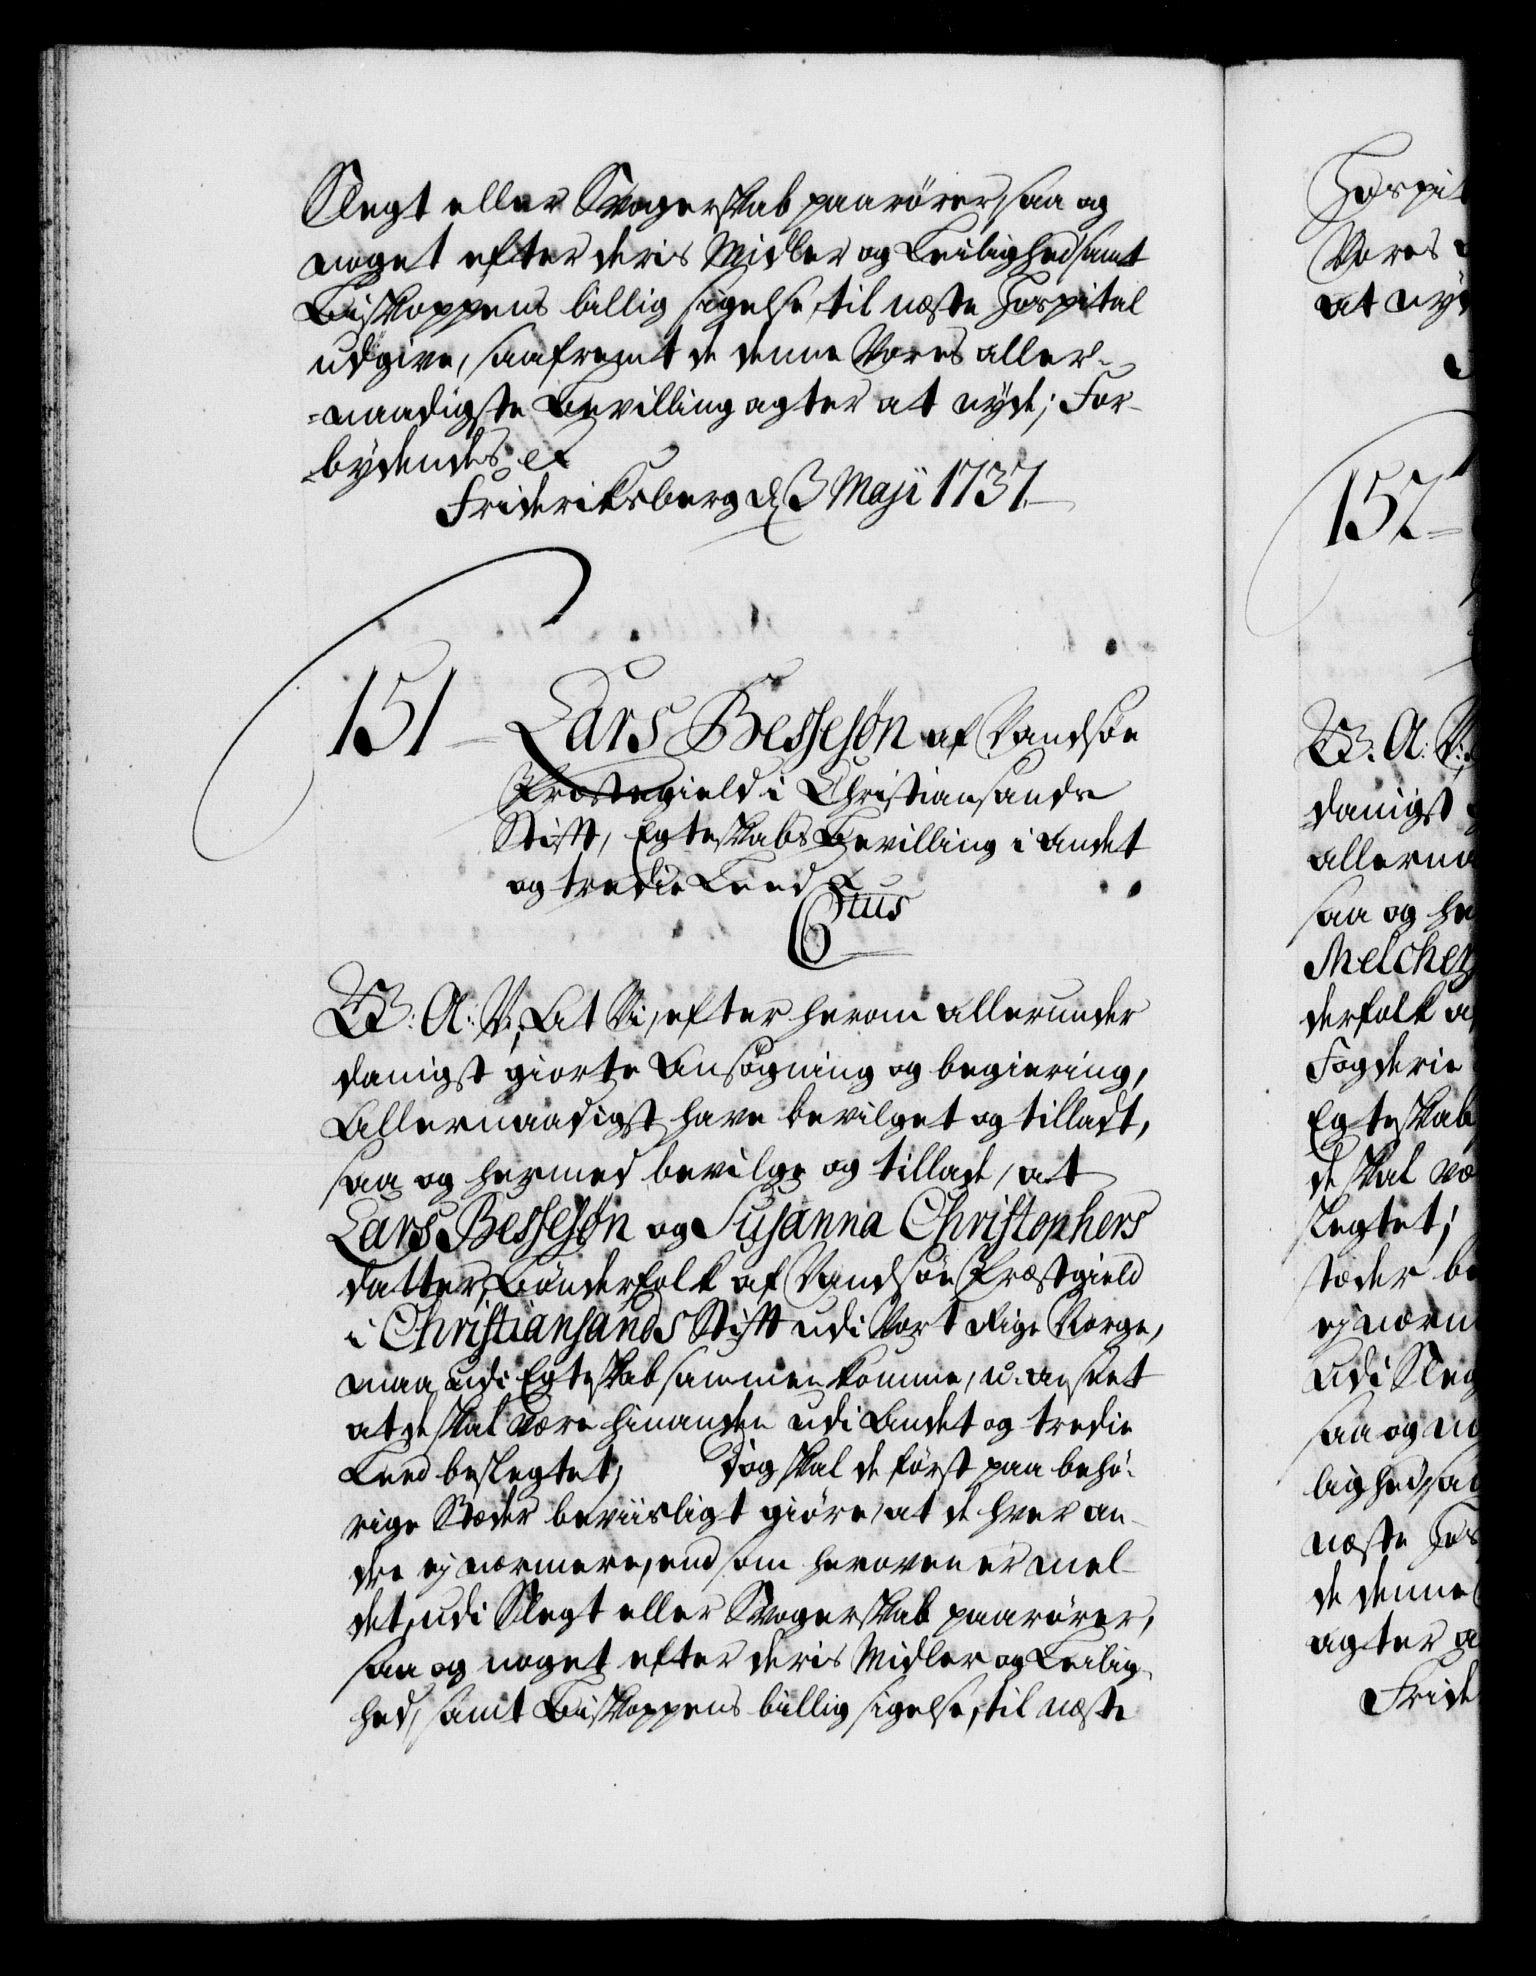 Slegt eller Svogerskab paarører, saa og
noget efter deris Midler og Leilighed samt
Biskoppens billig sigelse, til næste Hospital
udgive, saafremt de denne Vores aller-
=naadigste Bevilling agter at nyde; For-
bydendes &c
Friderichsberg d 3 Maji 1737
151 - Lars Bessesøn af Vandsøe
Præstegield i Christiansands
Stift, Egteskabs Bevilling i andet
og tredie Leed
C 6tus
W: A: V:, At Vi, efter herom allerunder
danigst giorte Ansøgning og begiering,
Allernaadigst have bevilget og tilladt,
saa og hermed bevilge og tillade, at
Lars Bessesøn og Susanna Christophers
datter, Bønderfolk af Vandsøe Præstgield
i Christiansands Stift udi Vort Rige Norge,
maa udi Egteskab sammen komme, u-anseet
at de skal være hinanden udi Andet og tredie
Leed beslegtet; Dog skal de først paa behø-
rige Stæder beviisligt giøre, at de hver an-
dre ej nærmere, end som heroven er mel-
det, udi Slegt eller Svogerskab paarører,
saa og noget efter deris Midler og Leilig-
hed, samt Biskoppens billig sigelse, til næste
Hospit
Vores
at nyd
152 -
W: A: V:
danigst
allerna
saa og he
Melcher
derfolk a
Fogderie
Egteskab
de skal væ
slegtet;
stæder be
ej nærm
udi Sleg
saa og no
lighed, sa
næste Hos
de denne
agter a
Fride